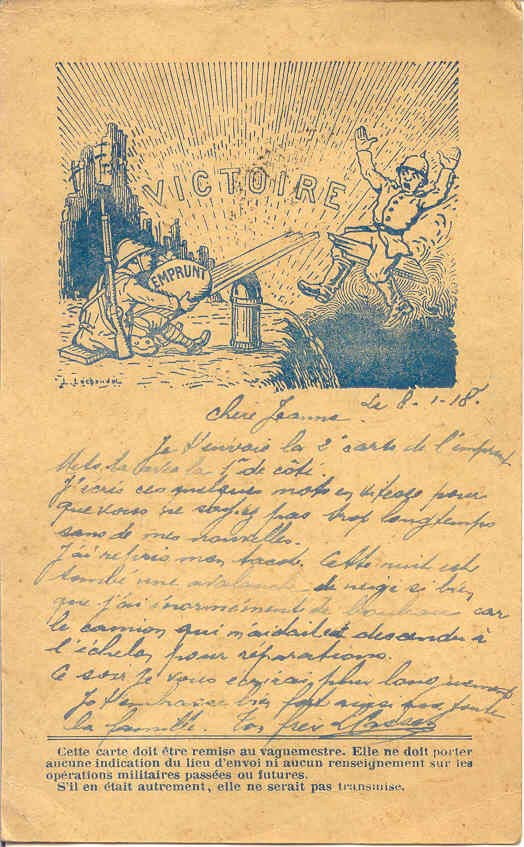 VICTOIRE
EMPRUNT
Le 8-1-18.
Chère Jeanne
Je t'envoie la 2e carte de l'emprunt
Mets la avec la 1re de côté.
J'écris ces quelques mots en vitesse pour
que vous ne soyez pas trop longtemps
sans de mes nouvelles.
J'ai repris mon tacot. Cette nuit est
tombé une avalanche de neige si bien
que j'ai énormément de car
le camion qui m'aidait est descendu à
l'échelon pour réparations.
Ce soir je vous écrirai plus longuement
Je t'embrasse bien fort ainsi que toute
la famille. Ton frère
Cette carte doit être remise au vaguemestre. Elle ne doit porter
aucune indication du lieu d'envoi ni aucun renseignement sur les
opérations militaires passées ou futures.
S'il en était autrement, elle ne serait pas transmise.